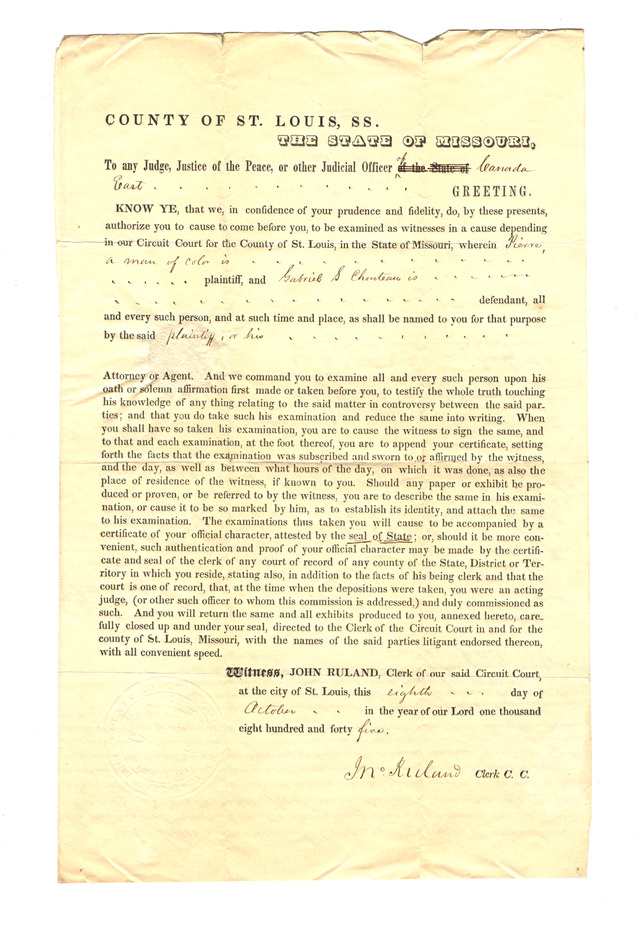 COUNTY OF ST. LOUIS, SS.
THE STATE OF MISSOURI,
To any Judge, Justice of the Peace, or other Judicial Officer of the State of of Canada
East . . . . . . . . . . . GREETING.
KNOW YE, that we, in confidence of your prudence and fidelity, do, by these presents,
authorize you to cause to come before you, to be examined as witnesses in a cause depending
in our Circuit Court for the County of St. Louis, in the State of Missouri, wherein Pierre,
a man of color is
plaintiff, and Gabriel S Chouteau is
defendant, all
and every such person, and at such time and place, as shall be named to you for that purpose
by the said plaintiff, or his
Attorney or Agent. And we command you to examine all and every such person upon his
oath or solemn affirmation first made or taken before you, to testify the whole truth touching
his knowledge of any thing relating to the said matter in controversy between the said par-
ties; and that you do take such his examination and reduce the same into writing. When
you shall have so taken his examination, you are to cause the witness to sign the same, and
to that and each examination, at the foot thereof, you are to append your certificate, setting
forth the facts that the examination was subscribed and sworn to or affirmed by the witness,
and the day, as well as between what hours of the day, on which it was done, as also the
place of residence of the witness, if known to you. Should any paper or exhibit be pro-
duced or proven, or be referred to by the witness, you are to describe the same in his exami-
nation, or cause it to be so marked by him, as to establish its identity, and attach the same
to his examination. The examinations thus taken you will cause to be accompanied by a
certificate of your official character, attested by the seal of State; or, should it be more con-
venient, such authentication and proof of your official character may be made by the certifi-
cate and seal of the clerk of any court of record of any county of the State, District or Ter-
ritory in which you reside, stating also, in addition to the facts of his being clerk and that the
court is one of record, that, at the time when the depositions were taken, you were an acting
judge, (or other such officer to whom this commission is addressed,) and duly commissioned as
such. And you will return the same and all exhibits produced to you, annexed hereto, care-
fully closed up and under your seal, directed to the Clerk of the Circuit Court in and for the
county of St. Louis, Missouri, with the names of the said parties litigant endorsed thereon,
with all convenient speed.
Witness, JOHN RULAND, Clerk of our said Circuit Court,
at the city of St. Louis, this eighth . . . day of
October . . in the year of our Lord one thousand
eight hundred and forty five.
Jno Ruland Clerk C. C.